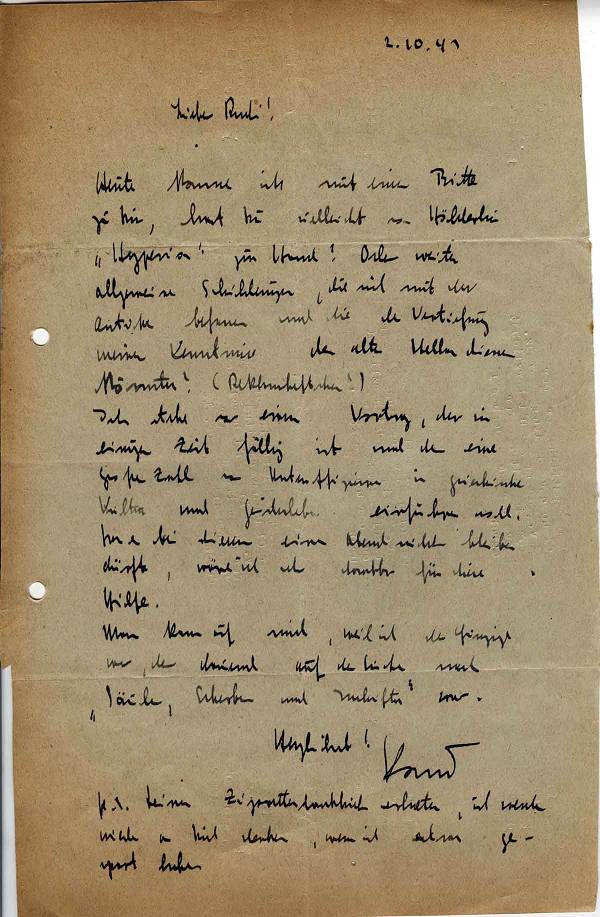 2.10.41
Lieber Rudi!
Heute komme ich mit einer Bitte
zu Dir, hast Du vielleicht von Hölderlin
„Hyperion" zur Hand? Oder weitere
allgemeine Schilderungen, die sich mit der
Antike befassen und die der Vertiefung
meiner Kenntnis des alten Hellas dienen
könnten? (Reklamheftchen!)
Ich stehe vor einem Vortrag, der in
einiger Zeit fällig ist und der eine
große Zahl von Unteroffizieren in griechische
Kultur und Geistesleben einführen soll.
Da es bei diesem einen Abend nicht bleiben
dürfte, wäre ich dankbar für Deine
Hilfe.
Man kam auf mich, weil ich der Einzige
war, der dauernd auf der Suche nach
„Säulen, Scherben und Inschriften" war.
Herzlichst!
p.s. Deinen erhalten, ich werde
wieder an Dich denken, wenn ich etwas ge-
spart habe.